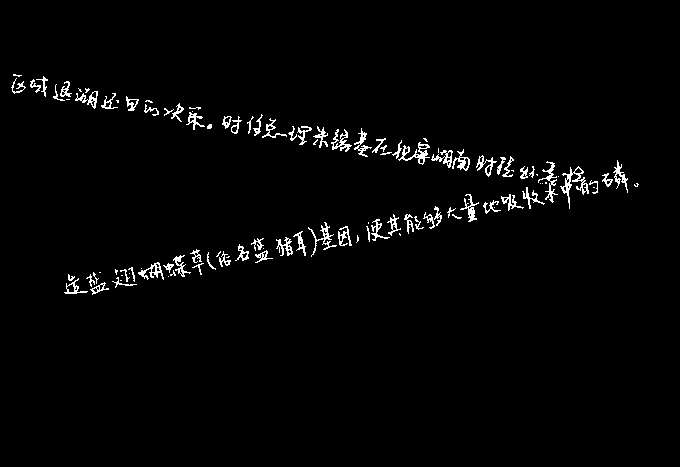 区域退湖还田的决策。时任总理朱镕基在视察湖南时提出：要
造蓝翅蝴蝶草(俗名蓝猪耳)基因，使其能够大量地吸收水中的磷。